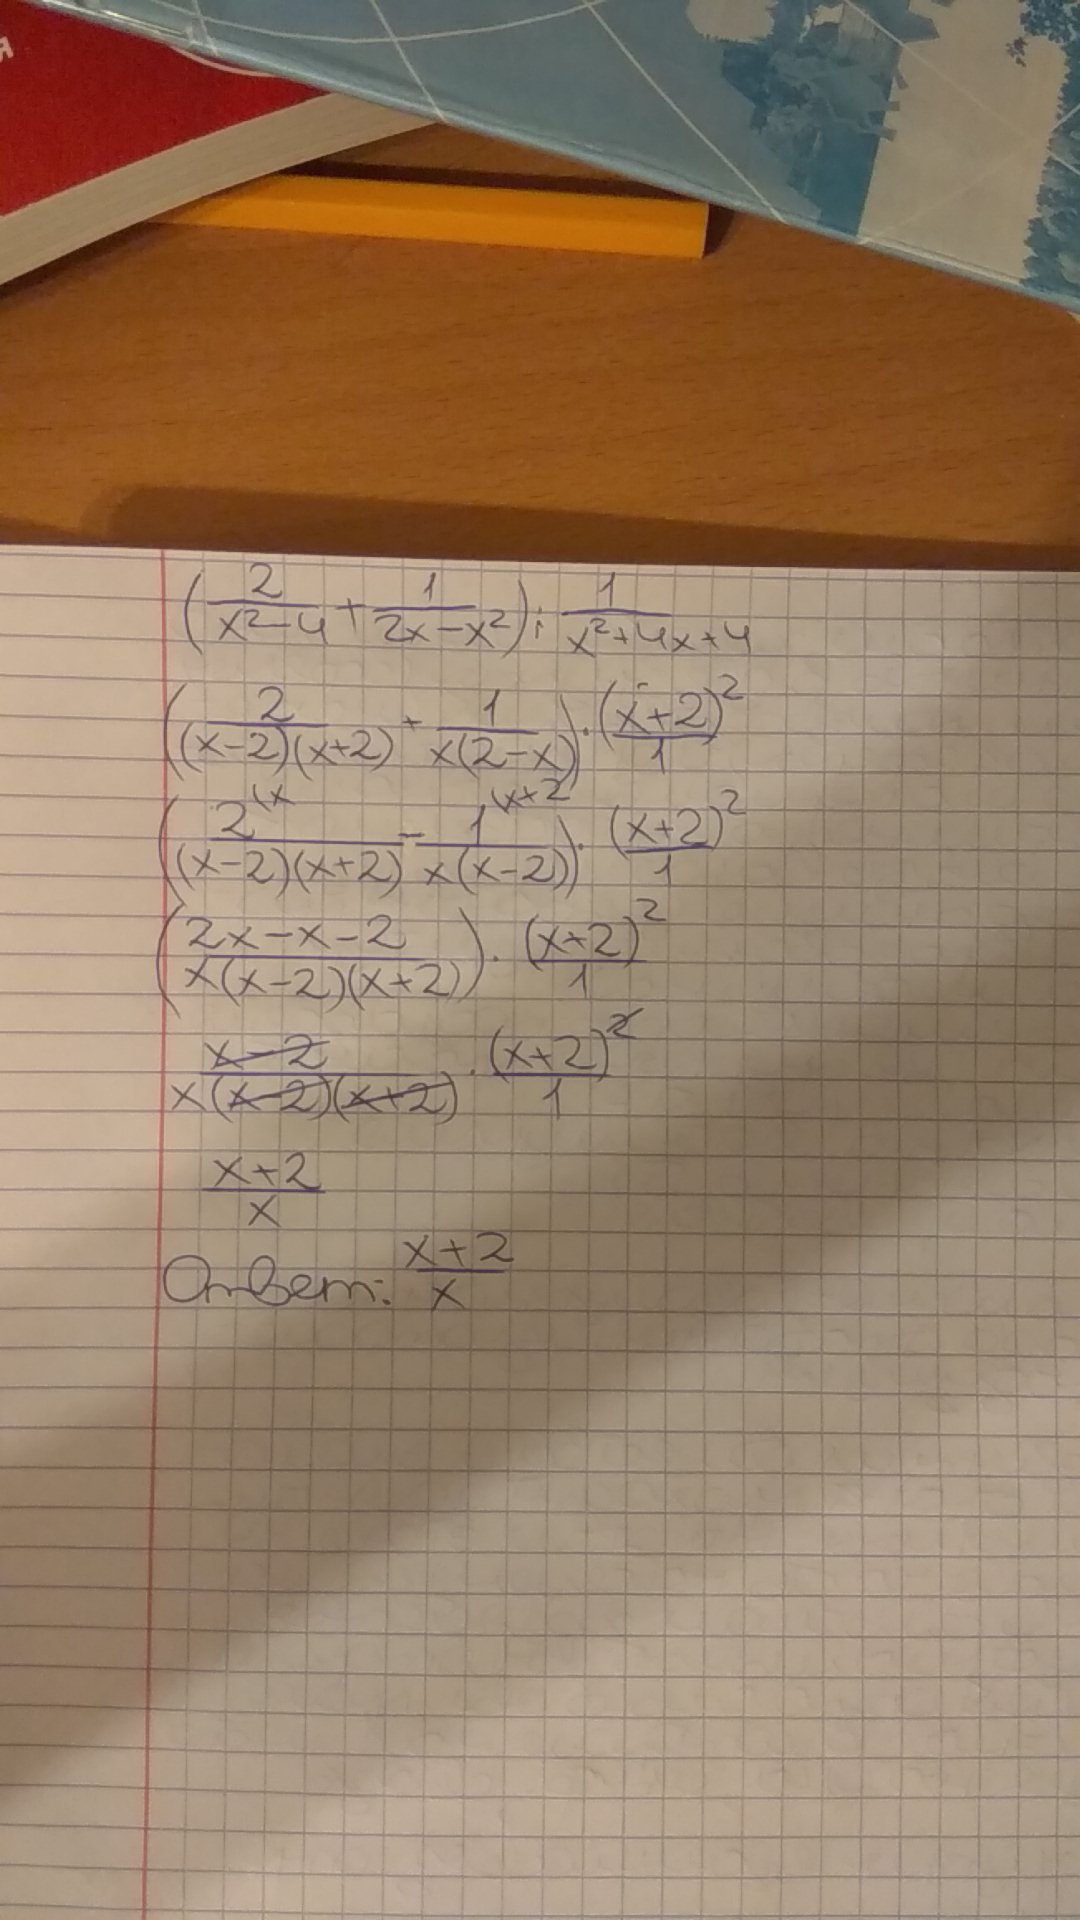 Я
(2/(x²-4) + 1/(2x-x²)) : 1/(x²+4x+4)
(2/((x-2)(x+2)) + 1/(x(2-x))) · (x+2)²/1
(2^(x/((x-2)(x+2)) - 1^(x+2/(x(x-2))) · (x+2)²/1
((2x-x-2)/(x(x-2)(x+2))) · (x+2)²/1
(x-2)/(x(x-2)(x+2)) · (x+2)²/1
(x+2)/x
Ответ: (x+2)/x